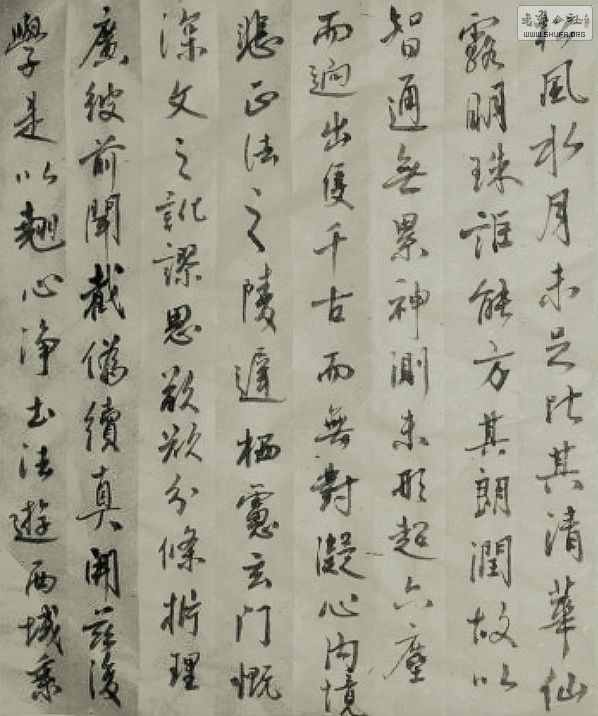 松風水月未足比其清華仙
露明珠詎能方其朗潤故以
智通無累神測未形超六塵
而迥出隻千古而無對凝心內境
悲正法之陵遲栖慮玄門慨
深文之訛謬思欲欲分條析理
廣彼前聞截偽續真開茲後
學是以翹心淨土法遊西域乘
WWW.SHUFA.ORG